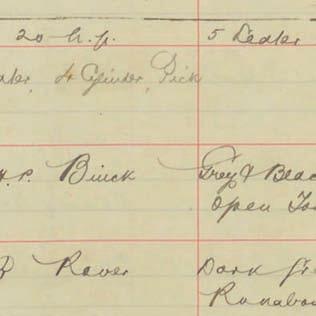 20 h.p. 5 Seater
4 Cylinder, Pick
H.P. Buick Grey & Blac
Open To
Rover Dark Gre
Runabou